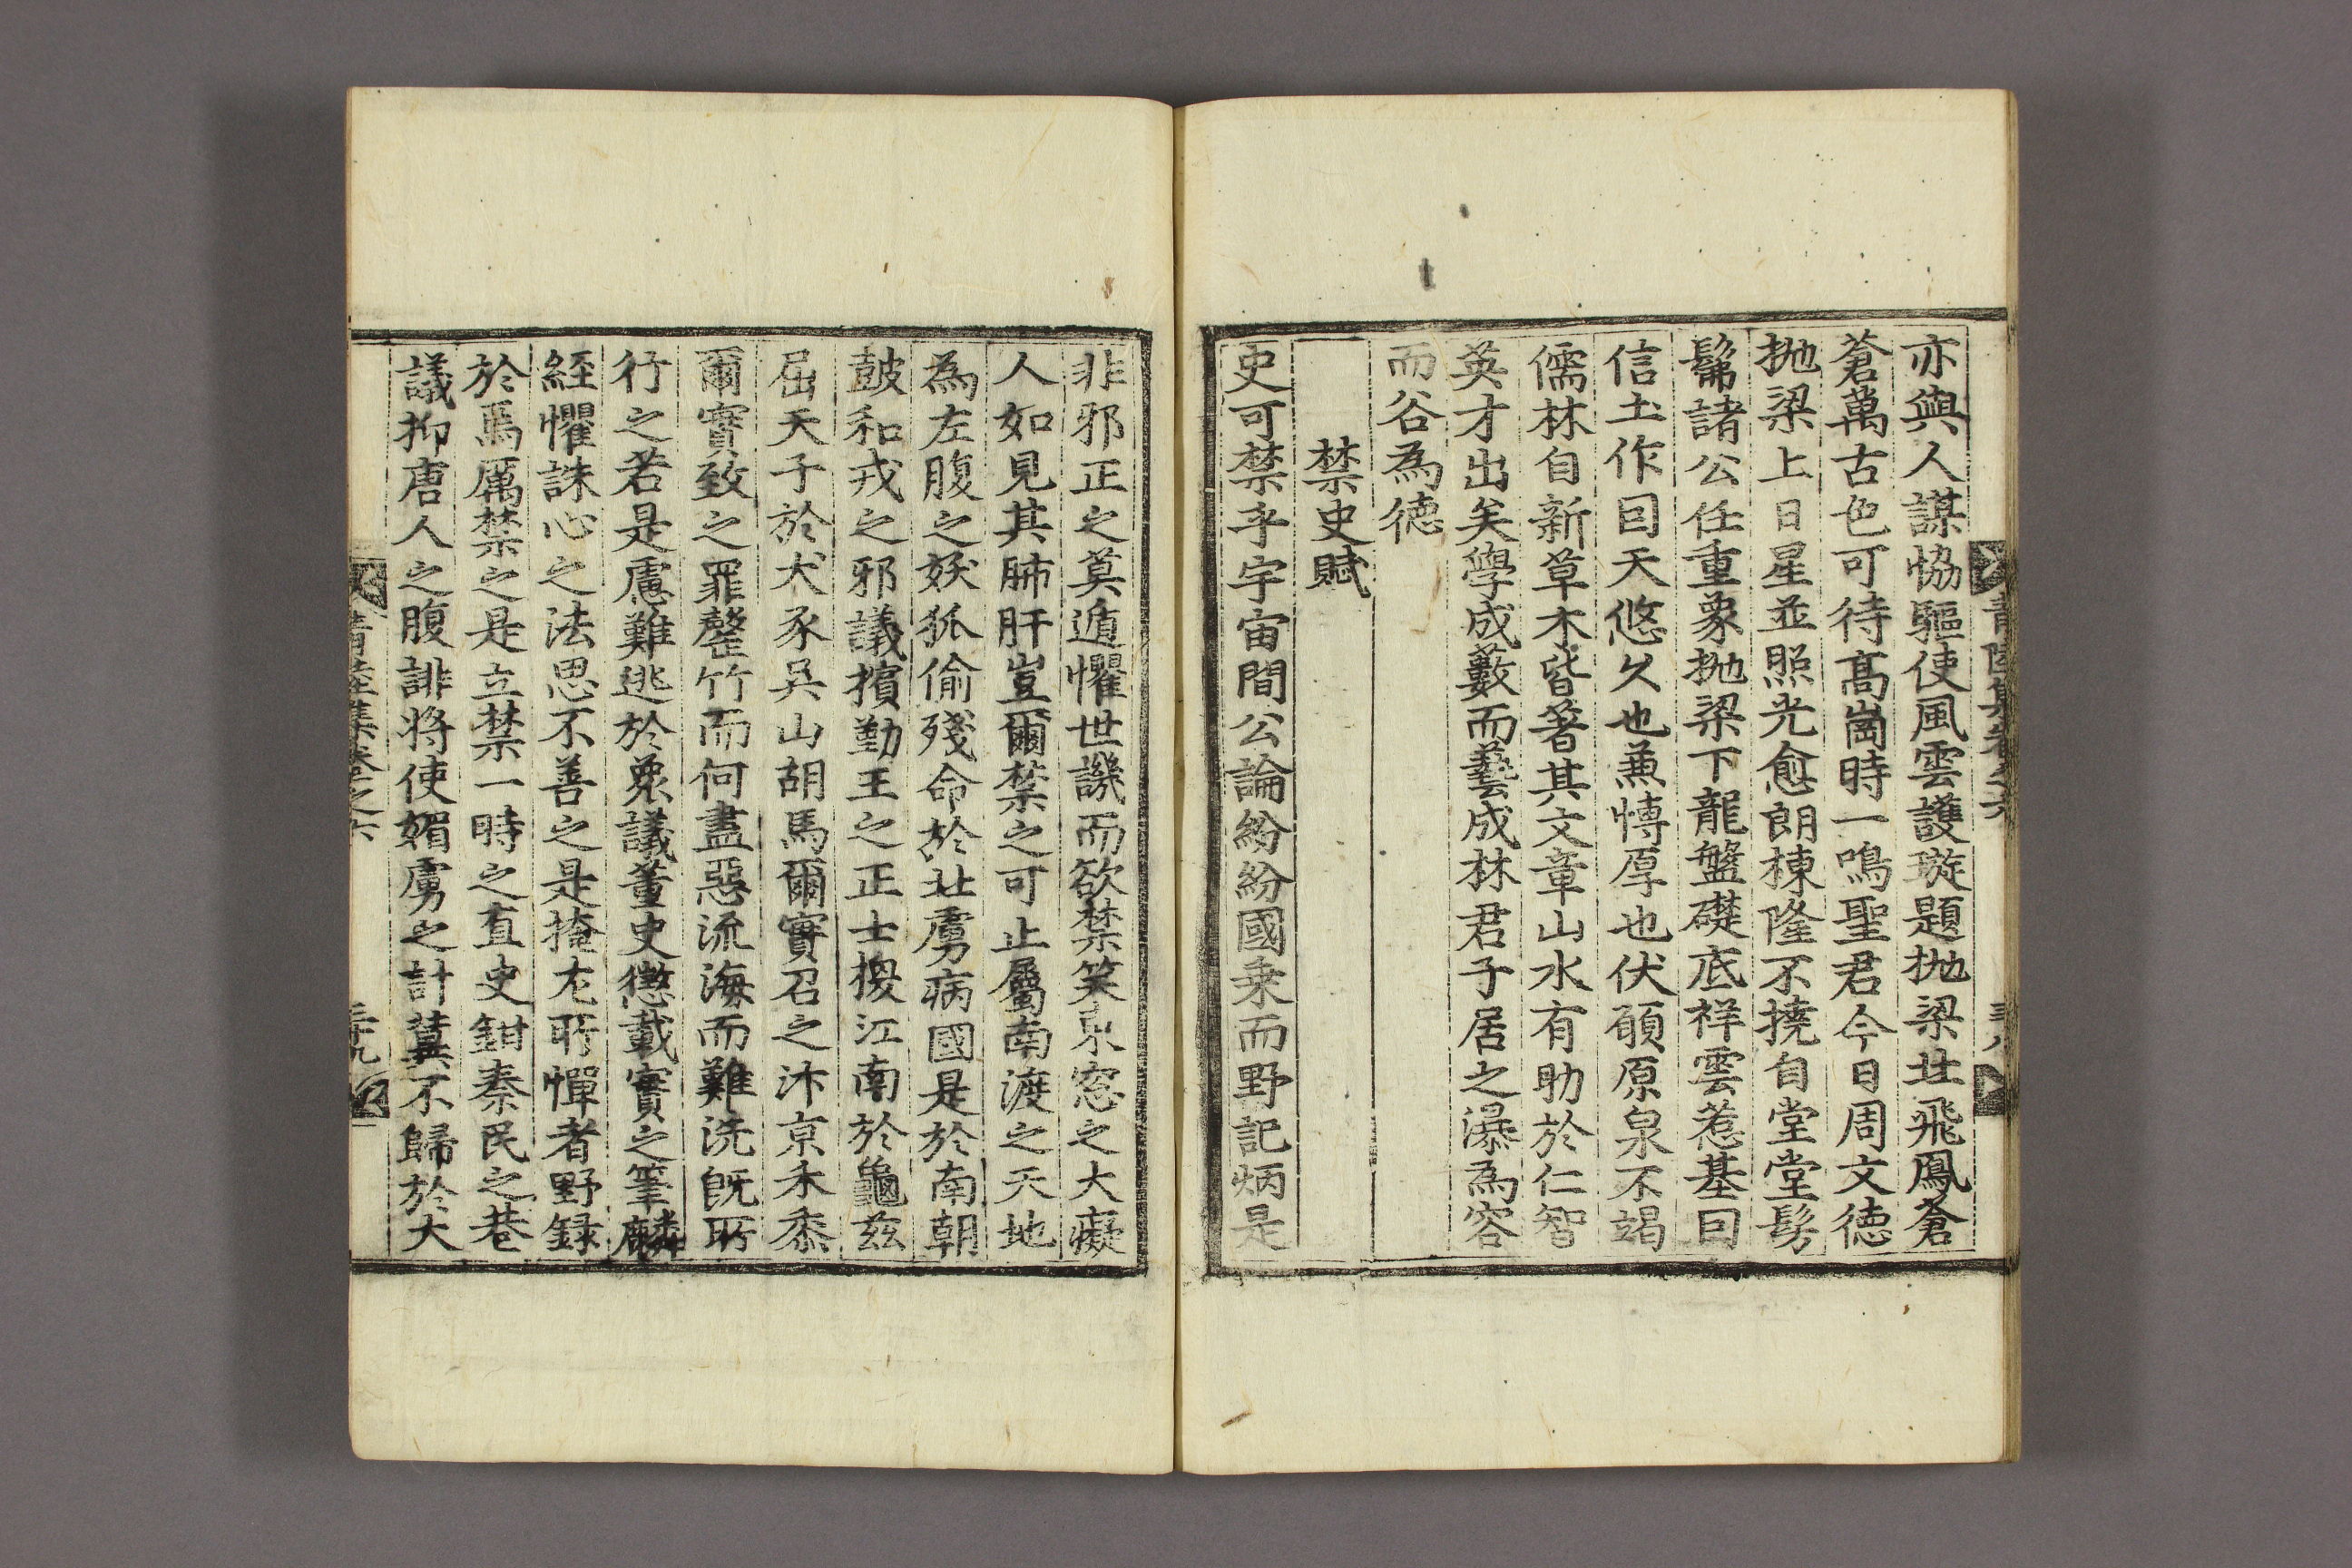 亦與人謀恊驅使風雲護璇題抛梁北飛鳳蒼
蒼萬古色可待髙崗時一鳴聖君今日周文徳
抛梁上日星並照光愈朗棟隆不撓自堂堂髣
髴諸公任重象抛梁下龍盤礎底祥雲惹基曰
信土作曰天悠久也兼愽厚也伏願原泉不竭
儒林自新草木皆著其文章山水有助於仁智
英才出矣學成藪而藝成林君子居之瀑為容
而谷為徳
禁史賦
史可禁乎宇宙間公論紛紛國乗而野記炳是
青陸集卷之六
三十八
非邪正之莫遁懼世譏而欲禁笑東窓之大癡
人如見其肺肝豈爾禁之可止屬南渡之天地
為左腹之妖狐偷殘命於北虜病國是於南朝
皷和戎之邪議擯勤王之正士搜江南於龜兹
屈天子於犬豕吳山胡馬爾實召之汴京禾黍
爾實致之罪罄竹而何盡惡流海而難洗旣所
行之若是慮難逃於衆議董史懲戴實之筆麟
經懼誅心之法思不善之是掩尤所憚者野録
於焉厲禁之是立禁一時之直史鉗秦民之巷
議抑唐人之腹誹将使媚虜之計冀不歸於大
青陸集卷之六
三十九